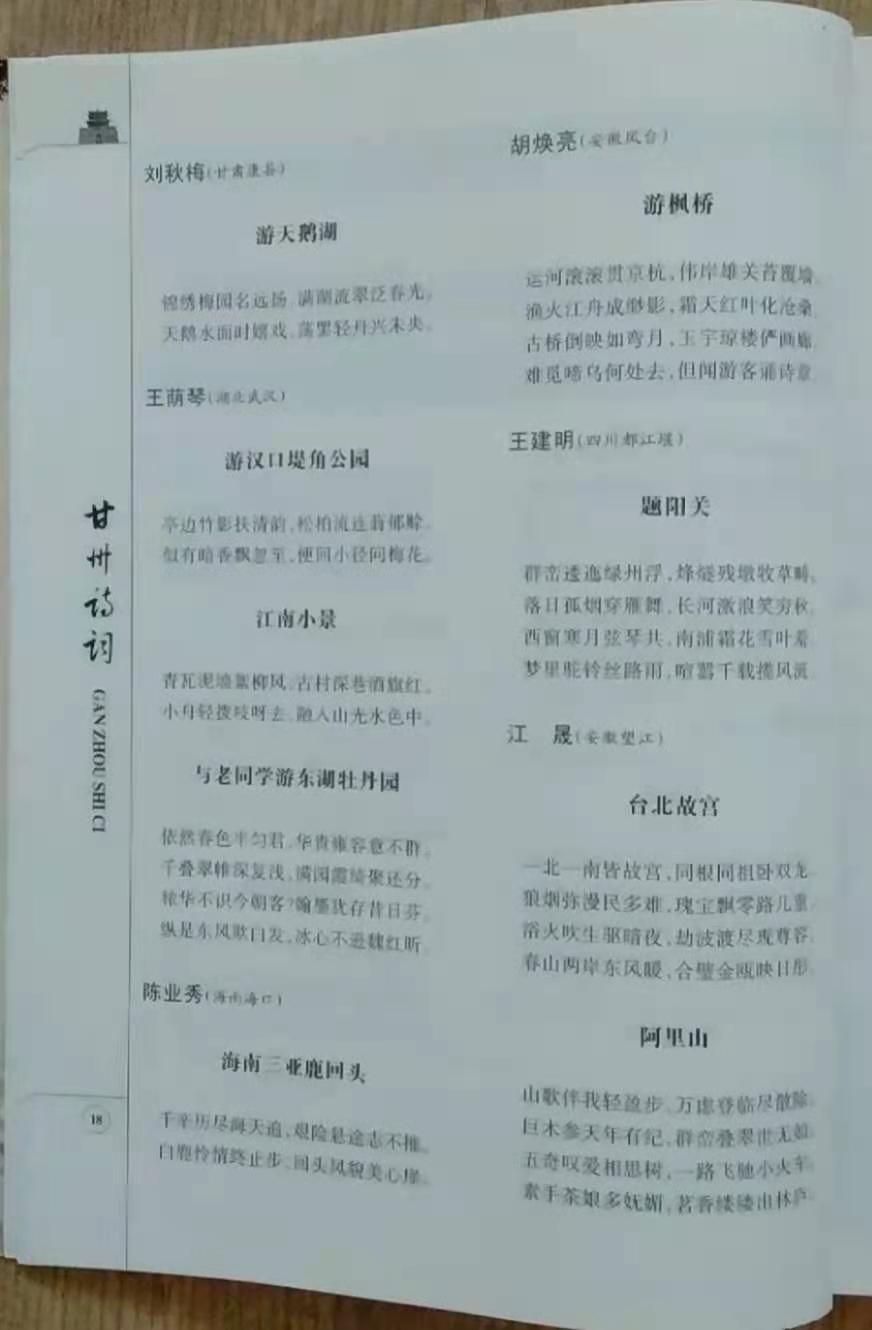 刘秋梅(甘肃康县)
游天鹅湖
锦绣梅园名远扬,满湖流翠泛春光。
天鹅水面时嬉戏,荡罢轻舟兴未央。
王荫琴(湖北武汉)
游汉口堤角公园
亭边竹影扶清韵,松柏流连蓊郁赊。
似有暗香飘忽至,便回小径问梅花。
江南小景
青瓦泥墙絮柳风,古村深巷酒旗红。
小舟轻拨吱呀去,融入山光水色中。
与老同学游东湖牡丹园
依然春色半匀君,华贵雍容意不群。
千叠翠帷深复浅,满园霞绮聚还分。
秾华不识今朝客?翰墨犹存昔日芬。
纵是东风欺白发,冰心不逊魏红昕。
陈业秀(海南海口)
海南三亚鹿回头
千辛历尽海天追,艰险悬途志不摧。
白鹿怜情终止步,回头风貌美心扉。
胡焕亮(安徽凤台)
游枫桥
运河滚滚贯京杭,伟岸雄关苔覆墙。
渔火江舟成缈影,霜天红叶化沧桑。
古桥倒映如弯月,玉宇琼楼俨画廊。
难觅啼乌何处去,但闻游客诵诗章。
王建明(四川都江堰)
题阳关
群峦逶迤绿州浮,烽燧残墩牧草畴。
落日孤烟穿雁舞,长河激浪笑穷秋。
西窗寒月弦琴共,南浦霜花雪叶羞。
梦里驼铃丝路雨,喧嚣千载揽风流。
江 晟(安徽望江)
台北故宫
一北一南皆故宫,同根同祖卧双龙。
狼烟弥漫民多难,瑰宝飘零路儿重。
浴火吹生驱暗夜,劫波渡尽现尊容。
春山两岸东风暖,合璧金瓯映日彤。
阿里山
山歌伴我轻盈步,万虑登临尽散除。
巨木参天年有纪,群峦叠翠世无如。
五奇叹爱相思树,一路飞驰小火车。
素手茶娘多妩媚,茗香缕缕出林庐。
甘州诗词
GAN ZHOU SHI CI
18